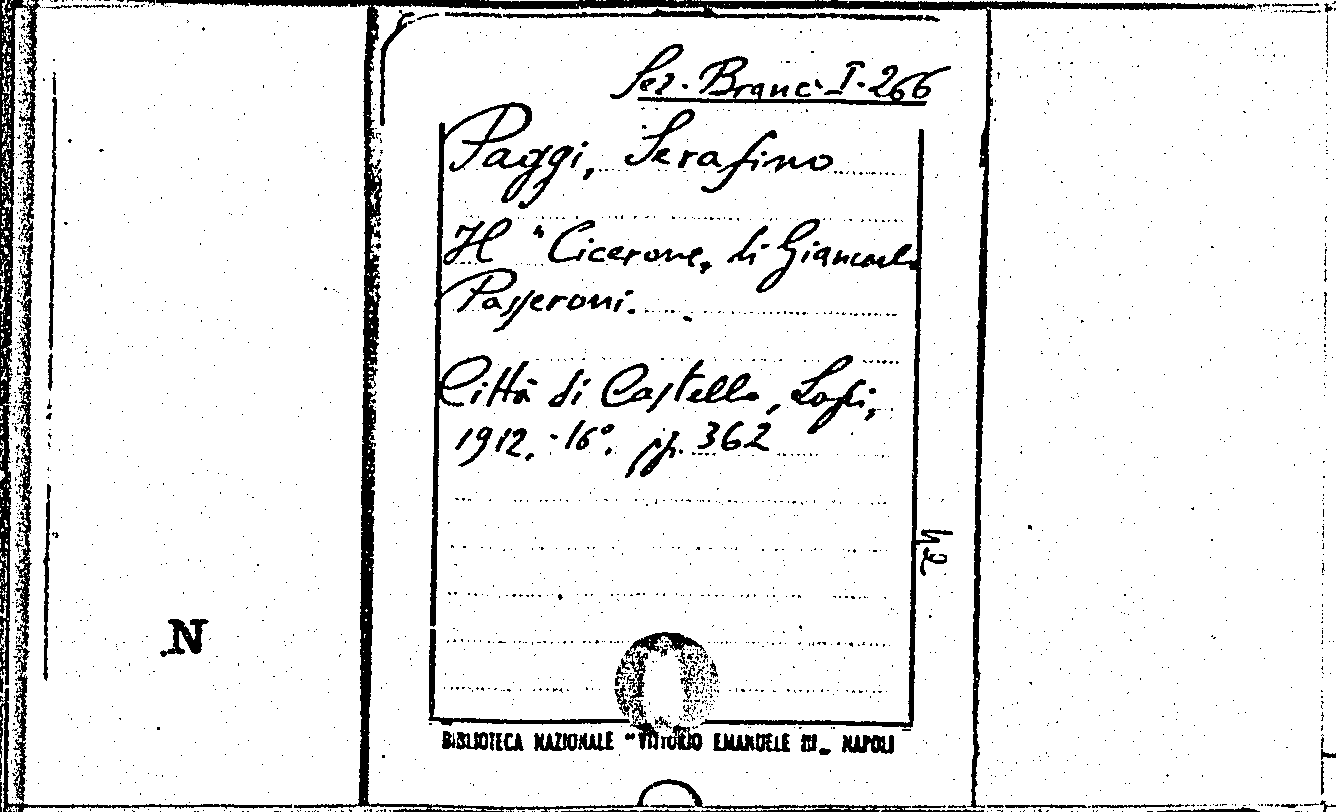 Sez. Branc. I. 266
Paggi, Serafino
Il "Cicerone„ di Giancarlo
Passeroni.
Città di Castello, Lapi,
1912. - 16°. pp. 362
N
BIBLIOTECA NAZIONALE "VITTORIO EMANUELE III„ NAPOLI